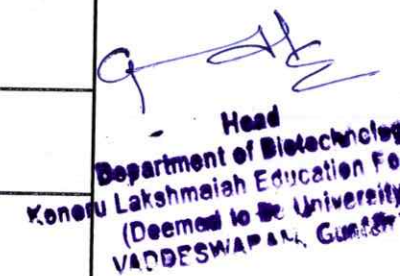 Head
Department of Biotechnolog
Koneru Lakshmaiah Education Fo
(Deemed to be University
VADDESWARAM, Guntur